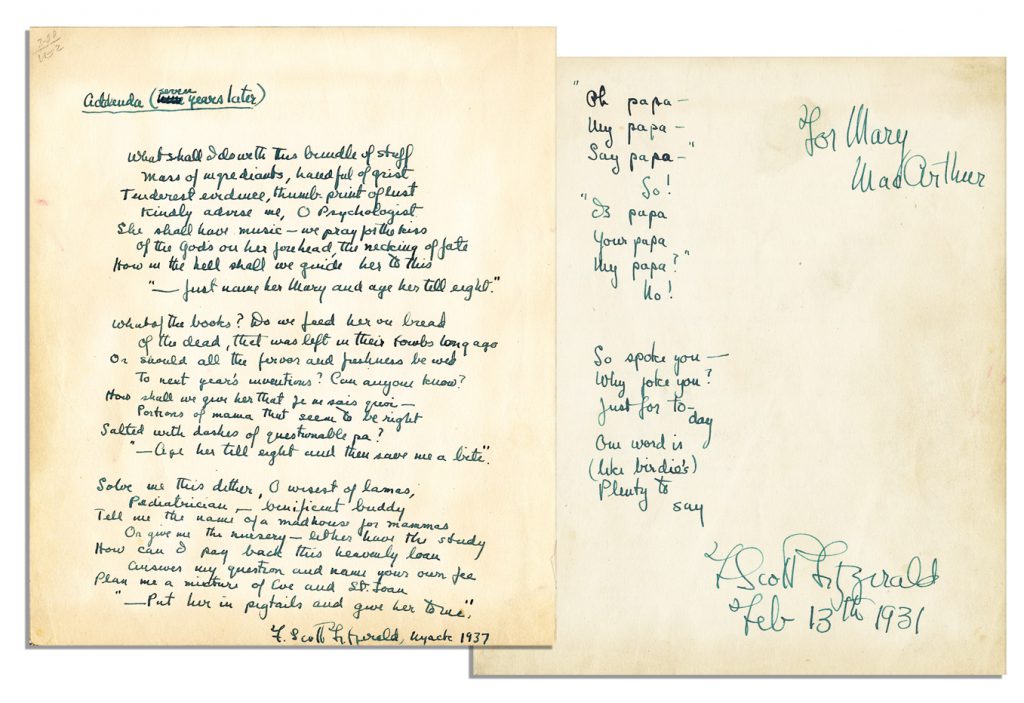 Addenda (seven years later)
What shall I do with this bundle of stuff
Mass of ingredients, handful of grist
Tenderest evidence, thumb-print of lust
Kindly advise me, O Psychologist
She shall have music — we pray for the kiss
of the gods on her forehead, the necking of fate
How in the hell shall we guide her to this
"— Just name her Mary and age her till eight."
What of the books? Do we feed her on bread
of the dead, that was left in their tombs long ago
Or should all the fervor and freshness be wed
To next year's inventions? Can anyone know?
How shall we give her that je ne sais quoi —
Portions of mama that seem to be right
Salted with dashes of questionable pa?
"— Age her till eight and then save me a bite".
Solve me this dither, O wisest of lamas,
Pediatrician — benificent buddy
Tell me the name of a madhouse for mammas
Or give me the nursery — let her have the study
How can I pay back this heavenly loan
Answer my question and name your own fee
Plan me a mixture of Eve and St. Joan
"— Put her in pigtails and give her to me".
F. Scott Fitzgerald, Nyack 1937
"Oh papa —
My papa —
Say papa —"
So!
"Is papa
Your papa
My papa?"
No!
So spoke you —
Why joke you?
Just for to-
day
One word is
(like birdie's)
Plenty to
say
For Mary
MacArthur
F Scott Fitzgerald
Feb 13th 1931